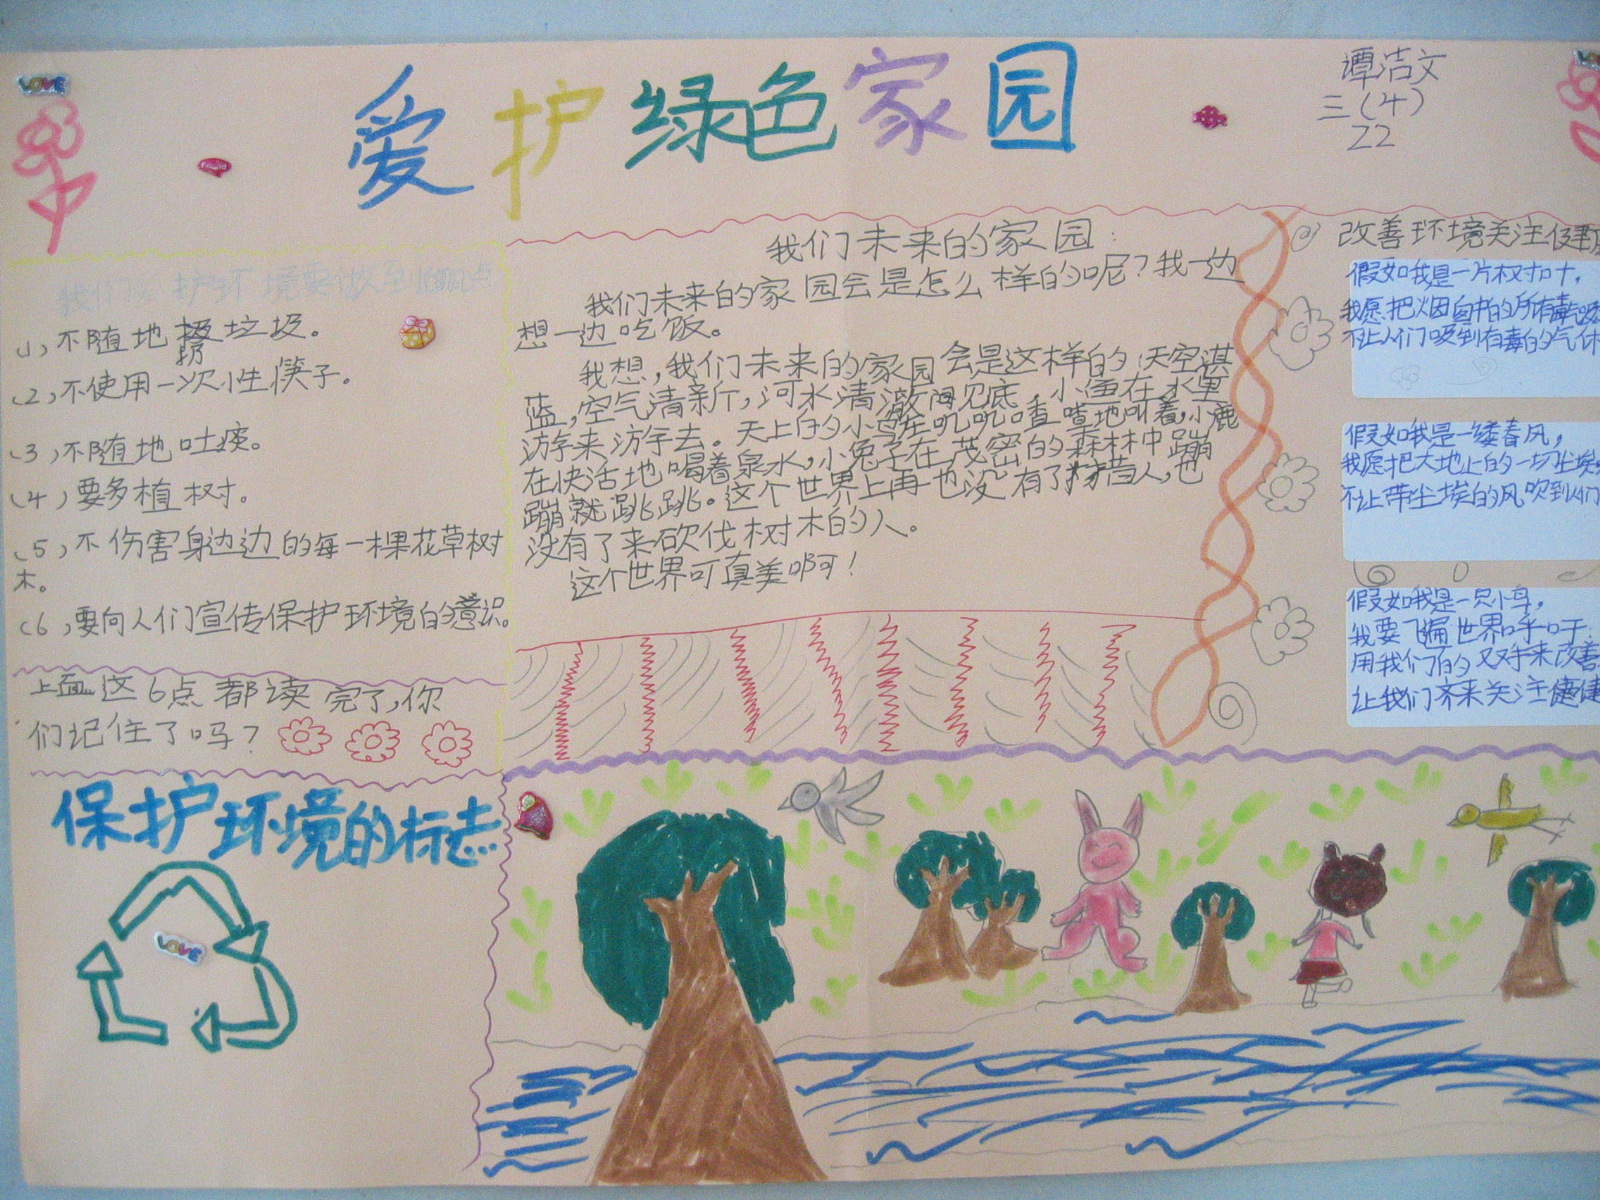 爱护绿色家园
谭洁文
三(4)
22
LOVE
我们 护环境要做到 点
(1),不随地扔垃圾。
(2),不使用一次性筷子。
(3),不随地吐痰。
(4),要多植树。
(5),不伤害身边边的每一棵花草树
木。
(6),要向人们宣传保护环境的意识。
上面这6点都读完了,你
们记住了吗?
保护环境的标志
LOVE
我们未来的家园:
我们未来的家园会是怎么样的呢?我一边
想一边吃饭。
我想,我们未来的家园会是这样的:天空湛
蓝,空气清新,河水清澈 见底,小鱼在水里
游来游去。天上的小 在叽叽喳喳地叫着,小鹿
在快活地喝着泉水,小兔子在茂密的森林中蹦
蹦 跳跳。这个世界上再也没有了 人,也
没有了来砍伐树木的人。
这个世界可真美啊!
改善环境关注
假如我是一片树叶,
我愿把烟囱中的所有毒
不让人们吸到有毒的气体
假如我是一缕春风,
我愿把大地上的一切尘埃
不让带尘埃的风吹到人们
假如我是一只小鸟,
我要飞遍世界呼吁:
用我们的双手来改善
让我们齐来关注健